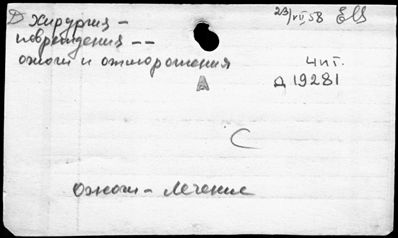 Д хирургия -
повреждения --
ожоги и отморожения
23/XII 58
Чит.
Д 19281
А
С
Ожоги - лечение